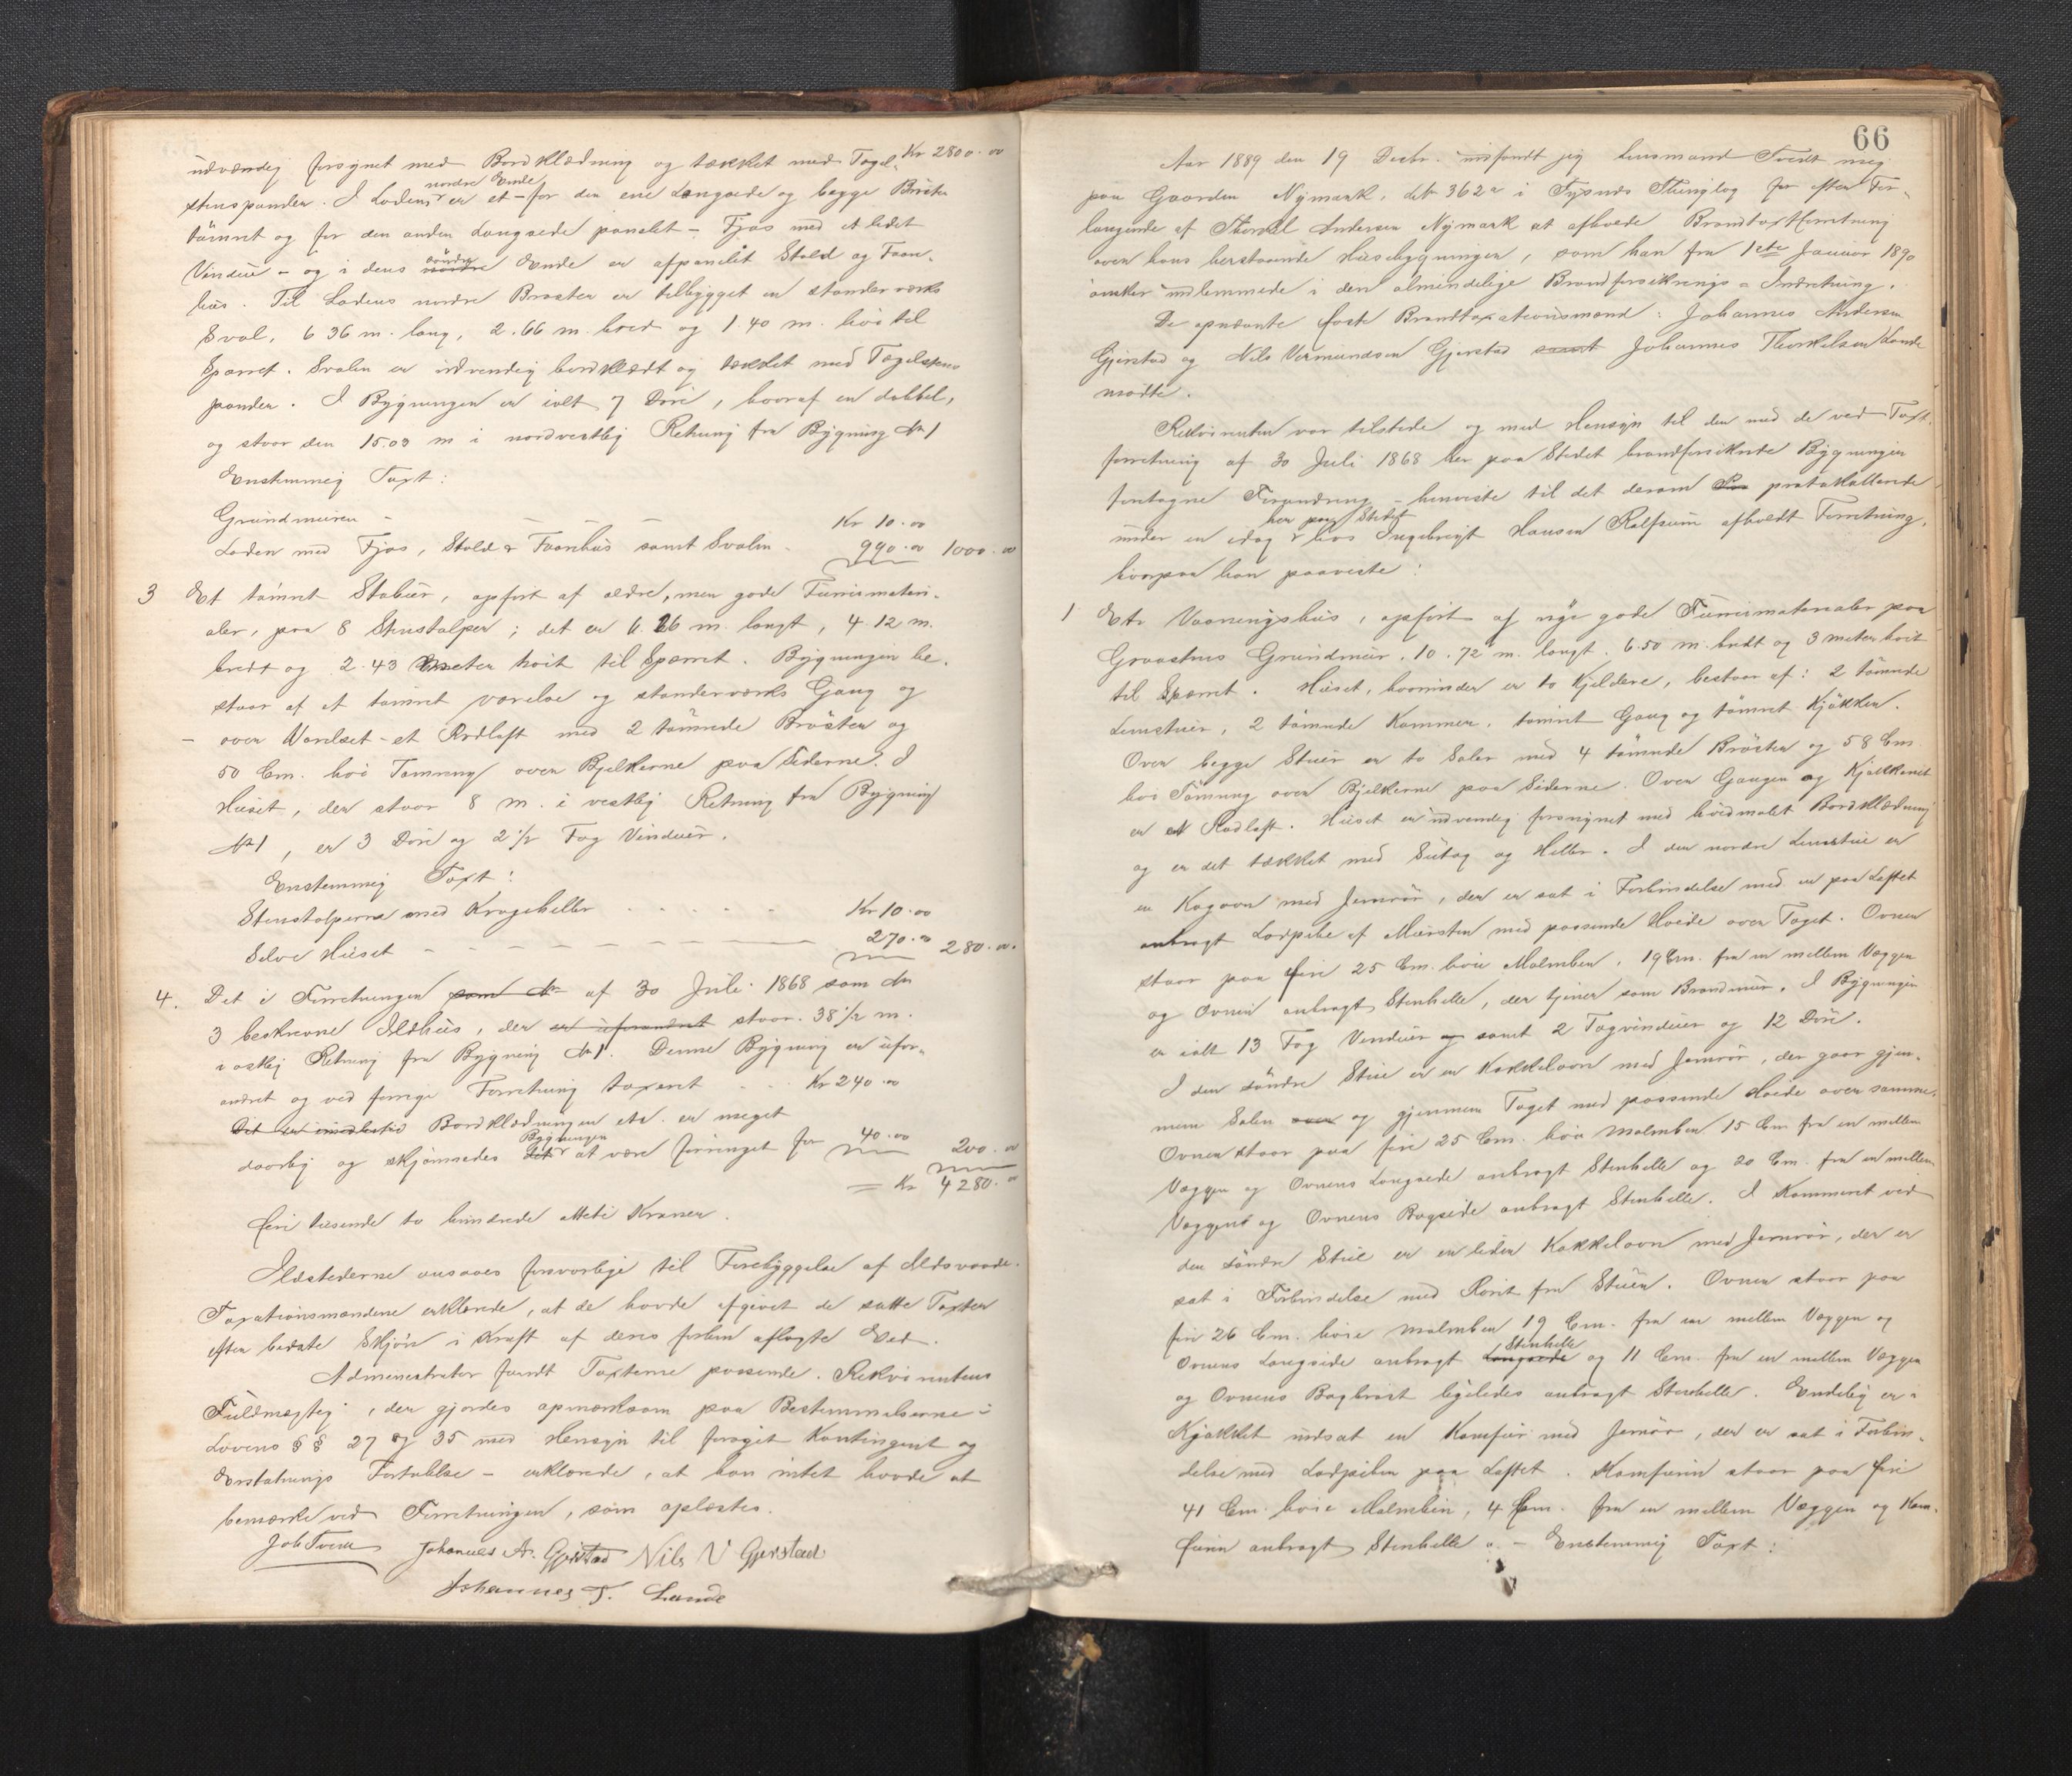 udvændig forsynet med Bordklædning og tækket med Tagel- Kr 2800.00
nordre Ende
stenspander. I Ladens er et - for den ene Langside og begge Bröster
tömret og for den anden Langside panelet - Fjös med et lidet
söndre
Vindue - og i dens nordre Ende er afpanelet Stald og Faar-
hus. Til Ladens nordre Bröster er tilbygget en standerværks
Sval, 6 36 m. lang, 2.66 m. bred og 1.40 m. höi til
Sparret. Svalen er udvendig bordklædt og tækket med Tagelstens
pander. I Bygningen er ialt 7 Döre, hvoraf en dobbel,
og staar den 15.03 m i nordvestlig Retning fra Bygning No 1
Enstemmig Taxt:
Grundmuren - - - - Kr 10.00
Laden med Fjös, Stald & Faarehus samt Svalen - 990.00 1000.00
3 Et tömret Stabur, opfört af ældre, men gode Furrumateri-
aler, paa 8 Stenstolper; det er 6.26 m. langt, 4.12 m.
bredt og 2.43 Meter höit til Sparret. Bygningen be-
staar af et tömret værelse og standerværks Gang og
- over Værelset - et Rodloft med 2 tömrede Bröster og
50 Cm. höi Tömring over Bjelkerne paa Siderne. I
Huset, der staar 8 m. i vestlig Retning fra Bygning
No 1, er 3 Döre og 2 1/2 Fag Vinduer.
Enstemmig Taxt:
Stenstolperne med Krageheller - - - - - Kr 10.00
Selve Huset - - - - - - - 270.00 280.00.
4. Det i Forretningen som No af 30 Juli 1868 som No
3 beskrevne Ildhus, der er uforandret staar 38 1/2 m.
i östlig Retning fra Bygning No 1. Denne Bygning er ufor-
andret og ved forrige Forretning taxeret - - Kr 240.00
Det er imidlertid Bordklædningen etc. er meget
Bygningen
daarlig og skjönnedes det at være forringet for 40.00 200.00
= Kr 4280.00
fire tusende to hundrede otteti Kroner.
Ildstederne ansaaes forsvarlige til Forebyggelse af Ildsvaade.
Taxationsmændene erklærede, at de havde afgivet de satte Taxter
efter bedste Skjön i Kraft af deres forhen aflagte Eed.
Administrator fandt Taxterne passende. Rekvirentens
Fuldmægtig, der gjordes opmærksom paa Bestemmelserne i
Lovens §§ 27 og 35 med Hensyn til foröget Kontingent og
Erstatnings Fortabelse - erklærede, at han intet havde at
bemærke ved Forretningen, som oplæstes.
Joh Tveit Johannes A. Gjerstad Nils V Gjerstad
Johannes T. Lunde
66
Aar 1889 den 19 Decbr. indfandt jeg Lensmand Tveit mig
paa Gaarden Nymark, No 362a i Fusnes Thinglag for efter For-
langende af Thorkel Andersen Nymark at afholde Brandtaxtforretning
over hans herstaaende Husebygninger, som han fra 1ste Januar 1890
önsker indlemmede i den almindelige Brandforsikrings-Indretning.
De opnævnte faste Brandtaxationsmænd: Johannes Andersen
Gjerstad og Nils Vermundsen Gjerstad samt Johannes Thorkelsen Lunde
mödte.
Rekvirenten var tilstede og med Hensyn til den med de ved Taxt-
forretning af 30 Juli 1868 her paa Stedet brandforsikrede Bygninger
foretagne Forandring - henviste til det derom protokollerede
her paa Stedet
under en idag hos Ingebrigt Hansen Rolfsum afholdt Forretning,
hvorpaa han paaviste:
1 Et Vaaningshus, opfört af nye gode Furrumaterialer paa
Graastens Grundmur, 10.72 m. langt. 6.50 m. bredt og 3 meter höit
til Sparret. Huset, hvorunder er to Kjeldere, bestaar af: 2 tömrede
Lemstuer, 2 tömrede Kammer, tömret Gang og tömret Kjökken.
Over begge Stuer er to Saler med 4 tömrede Bröster og 58 Cm.
höi Tömring over Bjelkerne paa Siderne. Over Gangen og Kjökkenet
er et Rodloft. Huset er udvendig forsynet med hvidmalet Bordklædning
og er det tækket med Sutag og Heller. I den nordre Lemstue er
en Kogovn med Jernrör, der er sat i Forbindelse med en paa Loftet
anbragt Lodpibe af Mursten med passende Höide over Taget. Ovnen
staar paa fire 25 Cm. höie Malmben, 19 Cm. fra en mellem Væggen
og Ovnen anbragt Stenhelle, der tjener som Brandmur. I Bygningen
er ialt 13 Fag Vinduer og samt 2 Tagvinduer og 12 Döre.
I den söndre Stue er en Kakkelovn med Jernrör, der gaar gjen-
nem Salen over og gjennem Taget med passende Höide over samme.
Ovnen staar paa fire 25 Cm. höie Malmben 15 Cm fra en mellem
Væggen og Ovnens Langside anbragt Stenhelle og 20 Cm. fra en mellem
Væggen og Ovnens Bagside anbragt Stenhelle. I Kammeret ved
den söndre Stue er en liden Kakkelovn med Jernrör, der er
sat i Forbindelse med Röret fra Stuen. Ovnen staar paa
fire 26 Cm. höie Malmben 19 Cm. fra en mellem Væggen og
Stenhelle
Ovnens Langside anbragt Langside og 11 Cm. fra en mellem Væggen
og Ovnens Bagbröst ligeledes anbragt Stenhelle. Endelig er i
Kjökket indsat en Komfur med Jernrör, der er sat i Forbin-
delse med Lodpiben paa Loftet. Komfuren staar paa fire
41 Cm. höie Malmben, 4 Cm. fra en mellem Væggen og Kom-
furen anbragt Stenhelle. - Enstemmig Taxt: